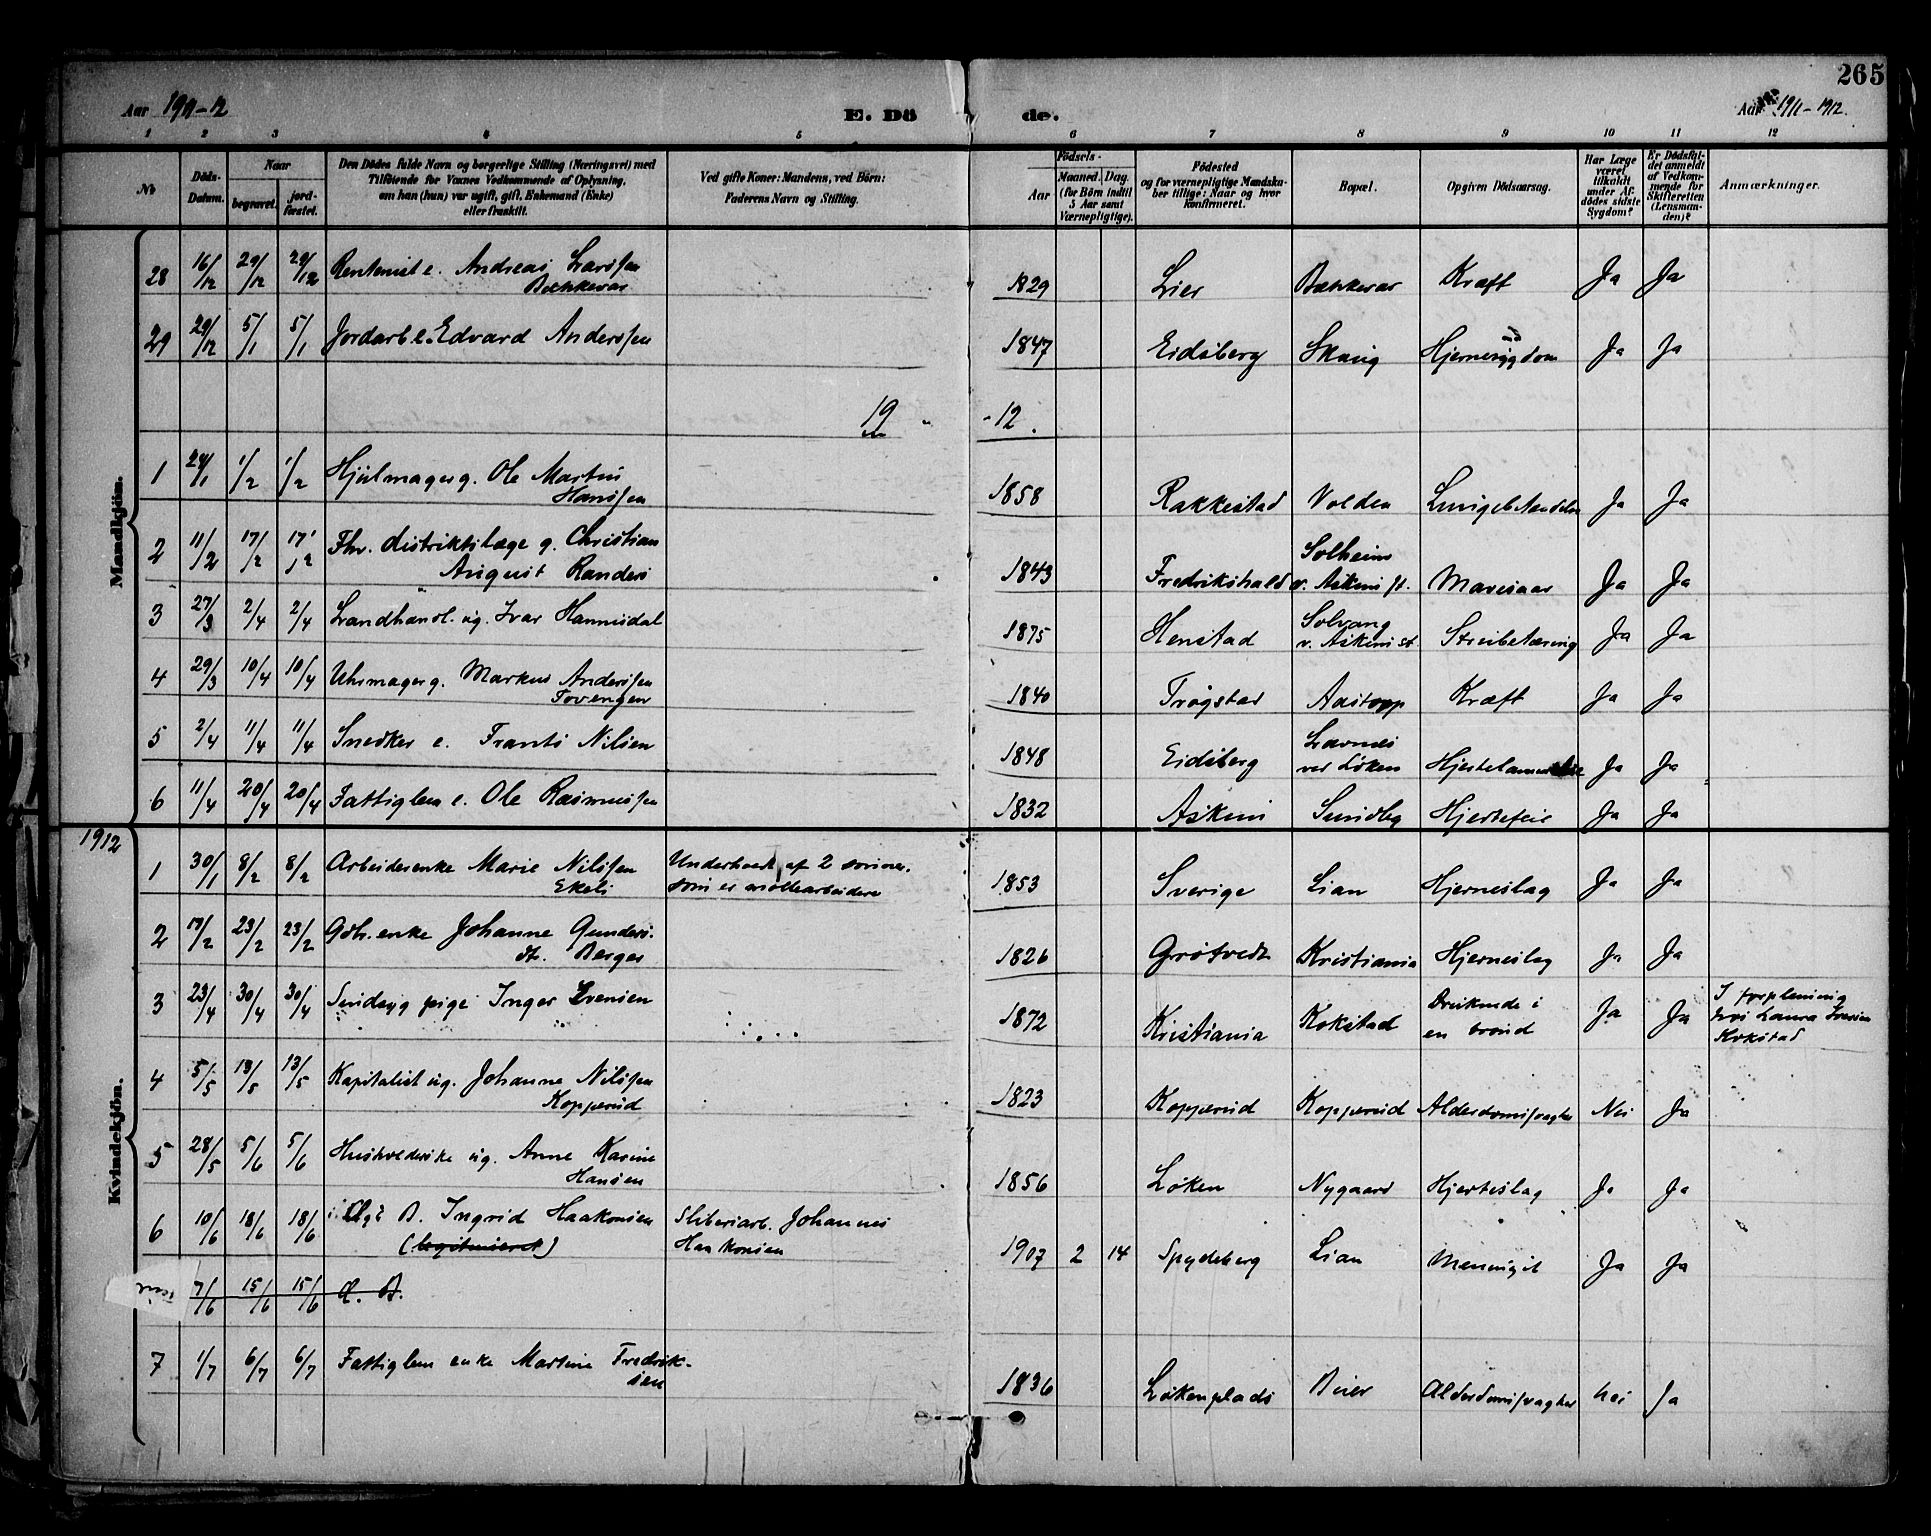 265
Aar 1911-12
E. Dö de.
Aar 1911-1912.
1 2 3 4 5 6 7 8 9 10 11 12
No
Döds-Datum.
Naar
begravet.
jord-fæstet.
Den Dödes fulde Navn og borgerlige Stilling (Næringsvei) med
Tilföiende for Voxnes Vedkommende af Oplysning,
om han (hun) var ugift, gift, Enkemand (Enke)
eller fraskilt.
Ved gifte Koner: Mandens, ved Börn:
Faderens Navn og Stilling.
Födsels-
Aar
Maaned. Dag.
(for Börn indtil
5 Aar samt
Værnepligtige).
Födested
og for værnepligtige Mandska-
ber tillige: Naar og hvor
konfirmeret.
Bopæl.
Opgiven Dödsaarsag.
Har Læge
været
tilkaldt
under Af-
dödes sidste
Sygdom?
Er Dödsfal-
det anmeldt
af Vedkom-
mende for
Skifteretten
(Lensman-
den)?
Anmærkninger.
Mandkjön.
28 16/12 29/12 29/12 Rentenist e. Andreas Larssen Bækkevar 1829 Lier Bækkevar Kræft Ja Ja
29 29/12 5/1 5/1 Jordarb. e. Edvard Anderssen 1847 Eidsberg Skaug Hjernesygdom Ja Ja
19 - 12.
1 24/1 1/2 1/2 Hjulmager g. Ole Martin Hanssen 1858 Rakkestad Volden Lungebetændelse Ja Ja
2 11/2 17/2 17/2 Fhv. distriktslæge g. Christian August Randers 1843 Fredrikshald Solheim v. Askim st. Mavesaar Ja Ja
3 27/3 2/4 2/4 Landhandl. ug. Ivar Hannisdal 1875 Henstad Solvang v. Askim st. Strubetæring Ja Ja
4 29/3 10/4 10/4 Uhrmager g. Markus Anderssen Tovengen 1840 Trøgstad Aastopp Kræft Ja Ja
5 2/4 11/4 11/4 Snedker e. Frants Nilsen 1848 Eidsberg ved Løken Ja Ja
6 11/4 20/4 20/4 Fattiglem e. Ole Rasmussen 1832 Askim Sundby Hjertefeil Ja Ja
1912
Kvindekjön.
1 30/1 8/2 8/2 Arbeiderenke Marie Nilssen Ekeli Underholdt af 2 sønner, som er møllearbeidere 1853 Sverige Lian Hjerneslag Ja Ja
2 17/2 23/2 23/2 Gdb. enke Johanne Gunders. dtr. Berger 1826 Grøtvedt Kristiania Hjerneslag Ja Ja
3 23/4 30/4 30/4 Sindssyg pige Inger Svensen 1872 Kristiania Kokstad Druknede i en brønd Ja Ja I forpleining hos Laura Svensen Kokstad
4 5/5 13/5 13/5 Kapitalist ug. Johanne Nilssen Kopperud 1823 Kopperud Kopperud Alderdomssvaghet Nei Ja
5 28/5 5/6 5/6 Husholderske ug. Anne Karine Hansen 1856 Løken Nygaard Hjerteslag Ja Ja
6 10/6 18/6 18/6 B. Ingrid Haakonsen (legitimeret) Sliberiarb. Johannes Haakonsen 1907 2 14 Spydeberg Lian Meningit Ja Ja
7/6 15/6 15/6 d. B.
7 1/7 6/7 6/7 Fattiglem enke Martine Fredriksen 1836 Løkenplads Buer Alderdomssvaghet Nei Ja